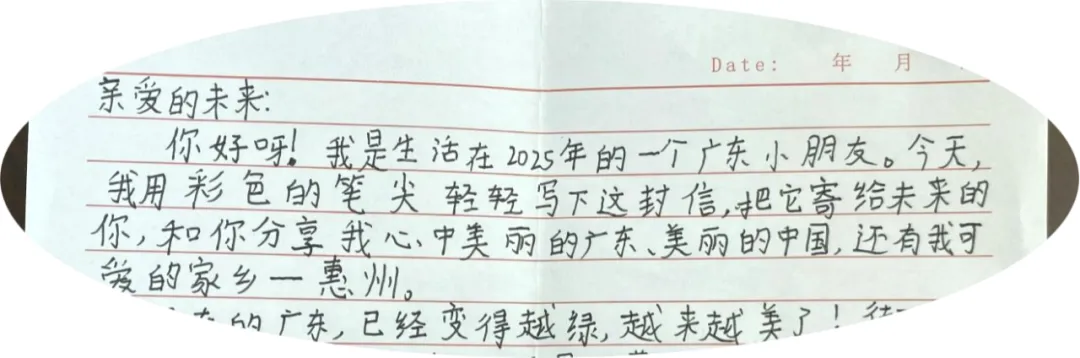 Date: 年 月
亲爱的未来:
你好呀!我是生活在2025年的一个广东小朋友。今天,
我用彩色的笔尖轻轻写下这封信,把它寄给未来的
你,和你分享我心中美丽的广东、美丽的中国,还有我可
爱的家乡一惠州。
的广东,已经变得越绿,越来越美了!